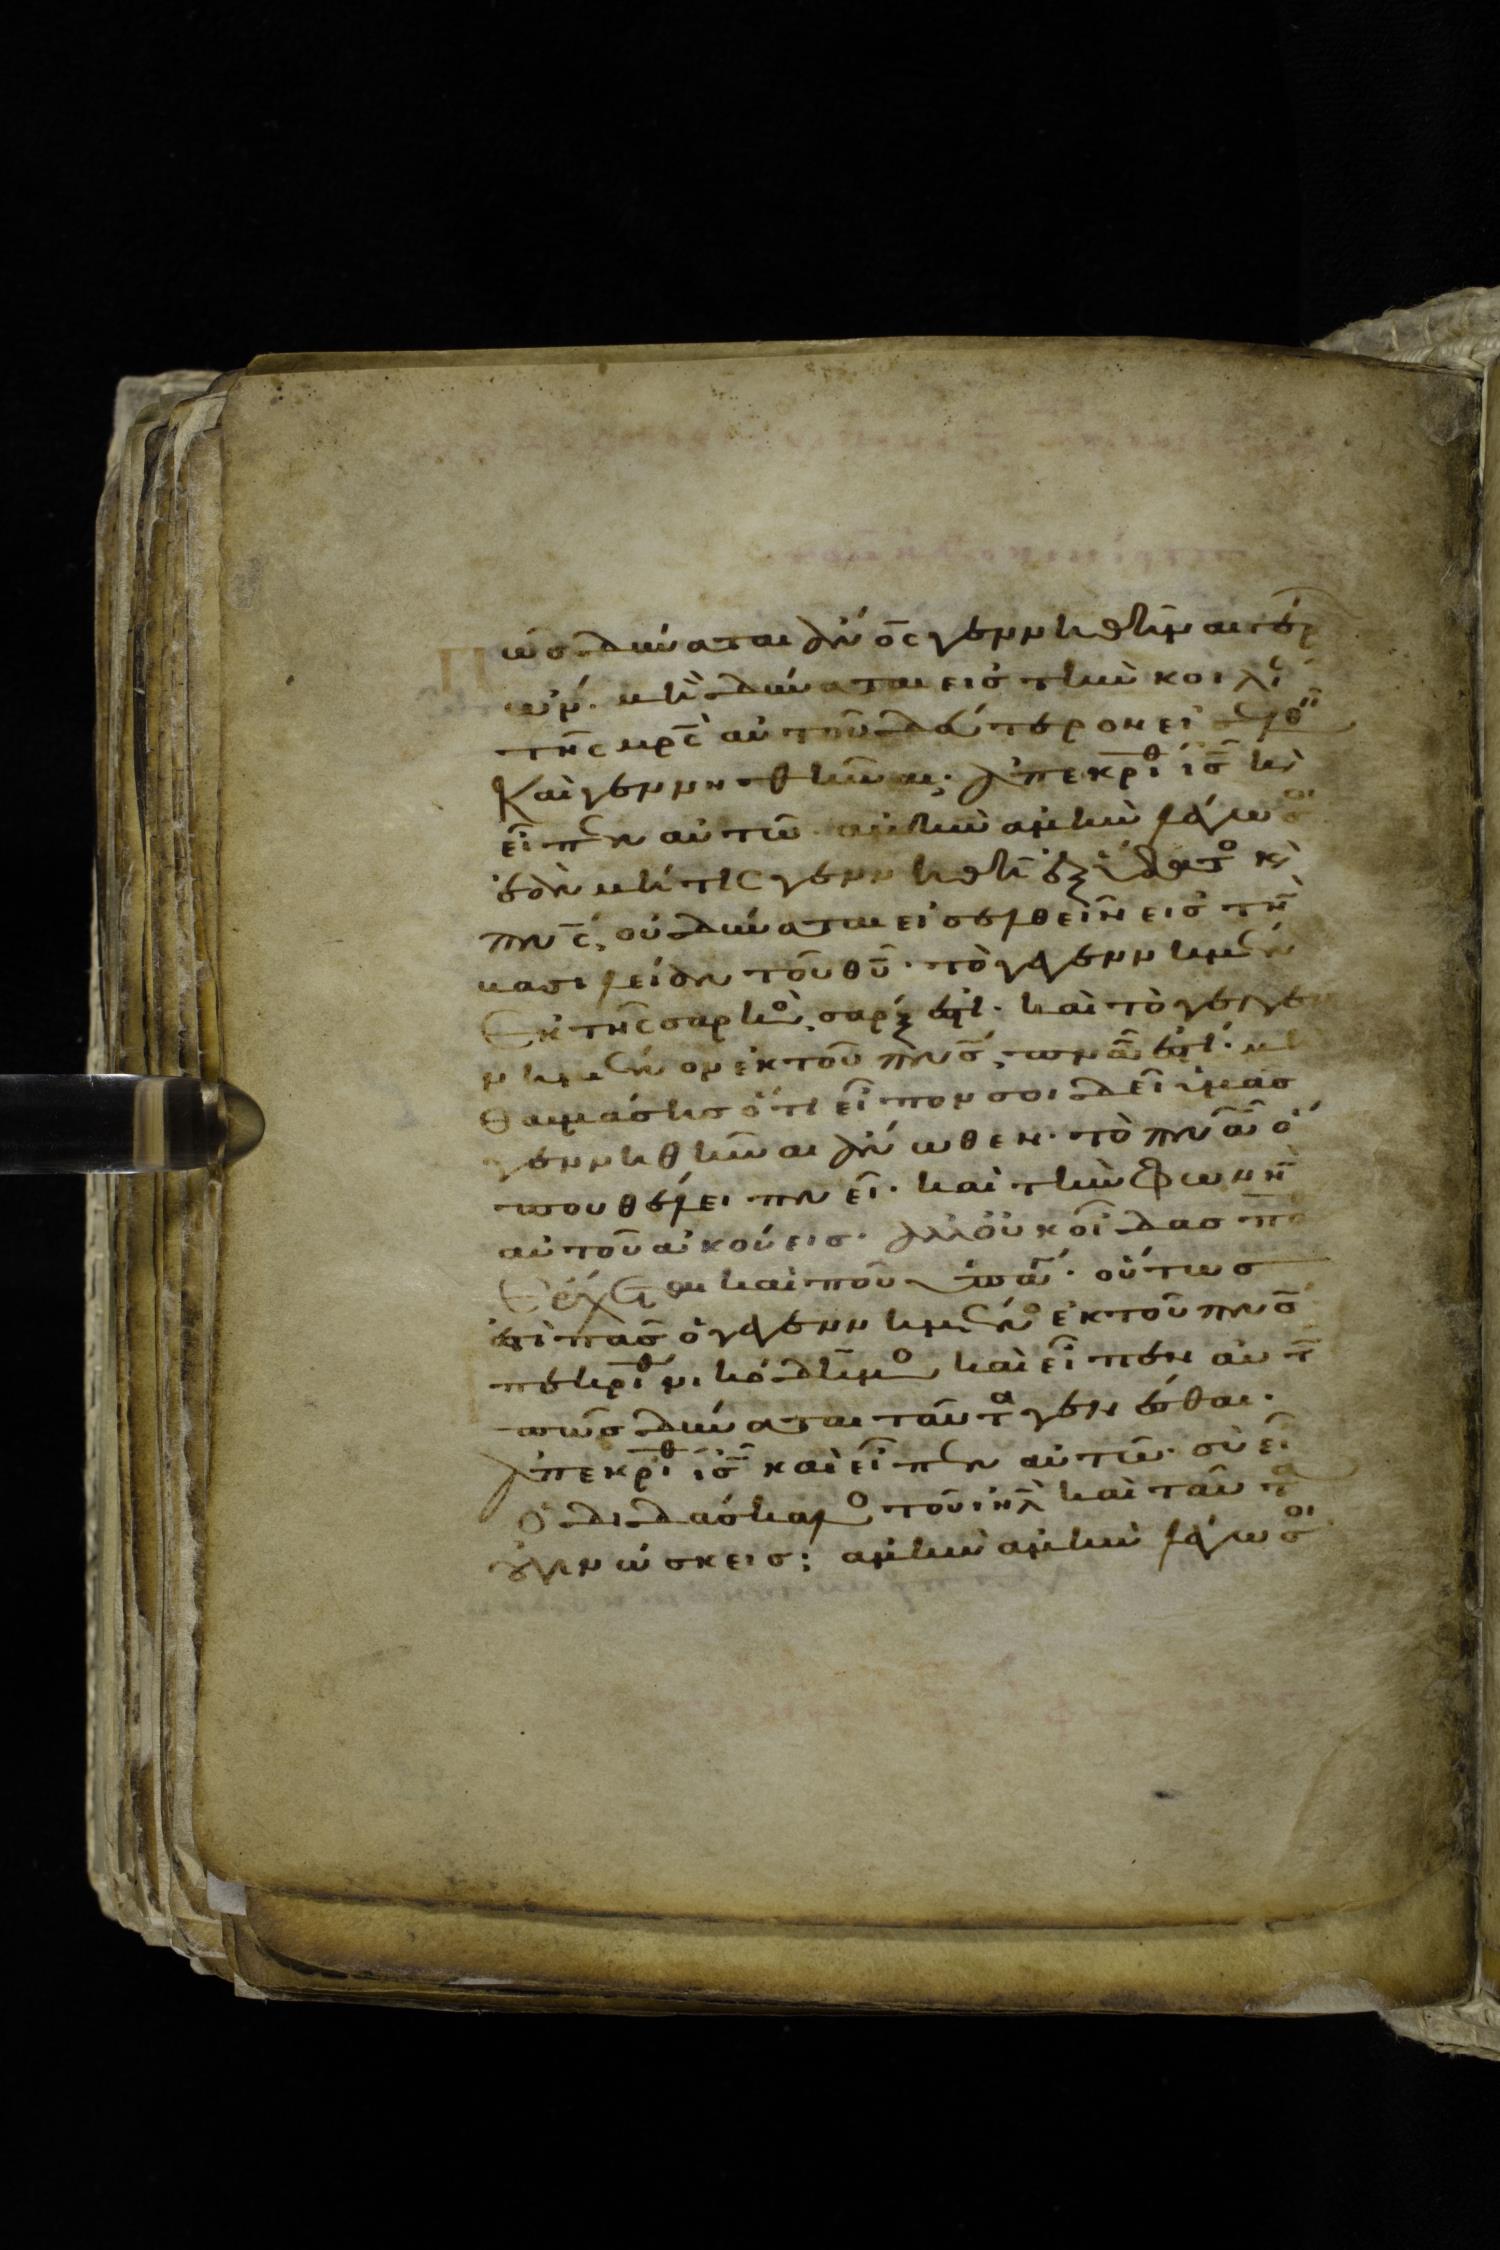 Πῶς δύναται ἄνος γεννηθῆναι γέρ
ων. μὴ δύναται εἰς τὴν κοιλί
τῆς μρς αὐτοῦ δεύτερον εἰσελθεῖ
Και γεννηθῆναι; ἀπεκρίθ ις κὶ
εἶπεν αὐτῶ ἀμὴν ἀμὴν λέγω σοι
ἐὰν μή τις γεννηθῆ ἐξ ὕδατο κὶ
πνς, οὐ δύναται εἰσελθεῖν εἰς τὴ
βασιλείαν τοῦ θυ. τὸ γεγεννημέν
ἐκ τῆς σαρκὸ, σάρξ ἐστι. καὶ τὸ γεγεν
νημένον ἐκ τοῦ πνς, πνα ἐστί. μὴ
θαυμάσης ὅτι εἶπον σοι δεῖ ὑμᾶς
γεννηθῆναι ἄνωθεν. τὸ πνα ὅ
που θέλει πνεῖ. καὶ τὴν φωνὴ
αὐτοῦ ἀκούεις. ἀλλ οὐκ οἶδας πο
ἔρχεται καὶ ποῦ ὑπάγ. οὕτως
ἐστὶ πᾶς ὁ γεγεννημένο ἐκ τοῦ πνς
πεκρίθ νικόδημο καὶ εἶπεν αὐτ
πῶς δύναται ταῦτα γενέσθαι.
ἀπεκρίθ ις καὶ εἶπεν αὐτῶ. σὺ εἶ
ὁ διδάσκαλο τοῦ ιηλ καὶ ταῦτα
οὐ γινώσκεις; ἀμὴν ἀμὴν λέγω σοι